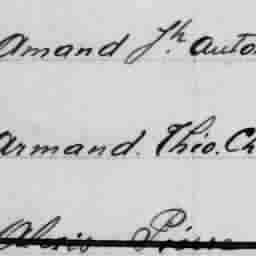 Amand Jh. Auto
Armand. Théo. Ch
Alexis Pierre